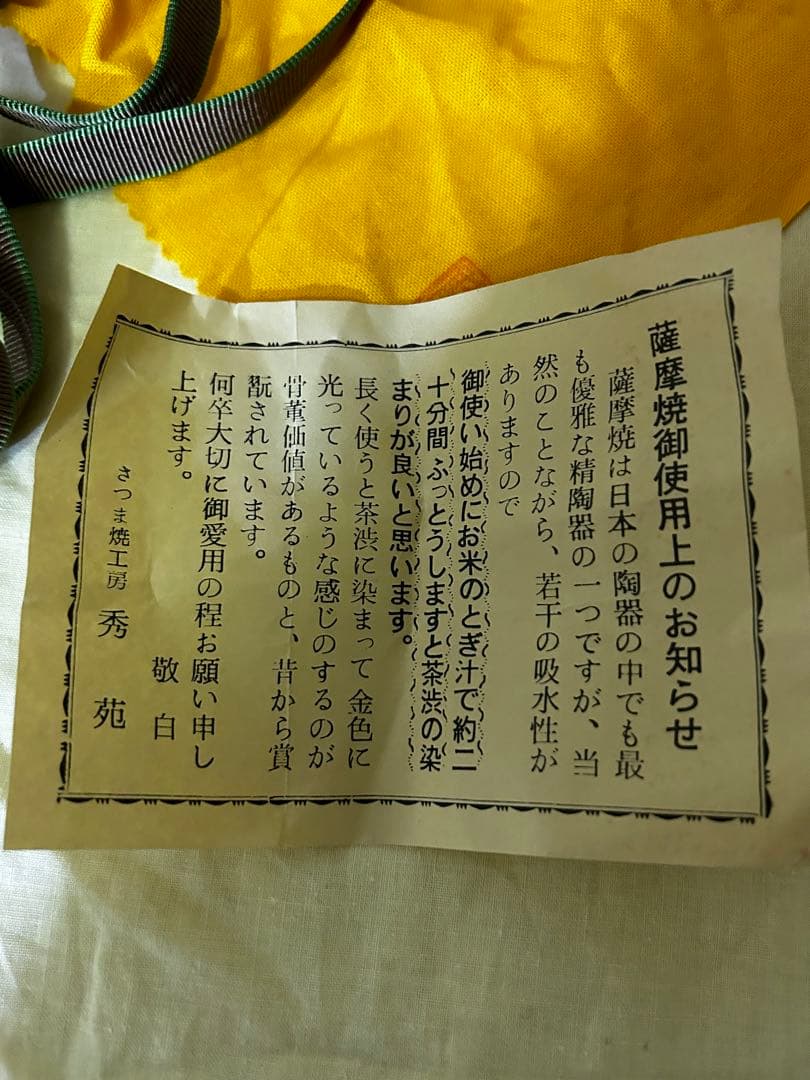 薩摩焼御使用上のお知らせ
薩摩焼は日本の陶器の中でも最
も優雅な精陶器の一つですが、当
然のことながら、若干の吸水性が
ありますので
御使い始めにお米のとぎ汁で約二
十分間ふっとうしますと茶渋の染
まりが良いと思います。
長く使うと茶渋に染まって金色に
光っているような感じのするのが
骨董価値があるものと、昔から賞
翫されています。
何卒大切に御愛用の程お願い申し
上げます。
敬白
さつま焼工房 秀苑